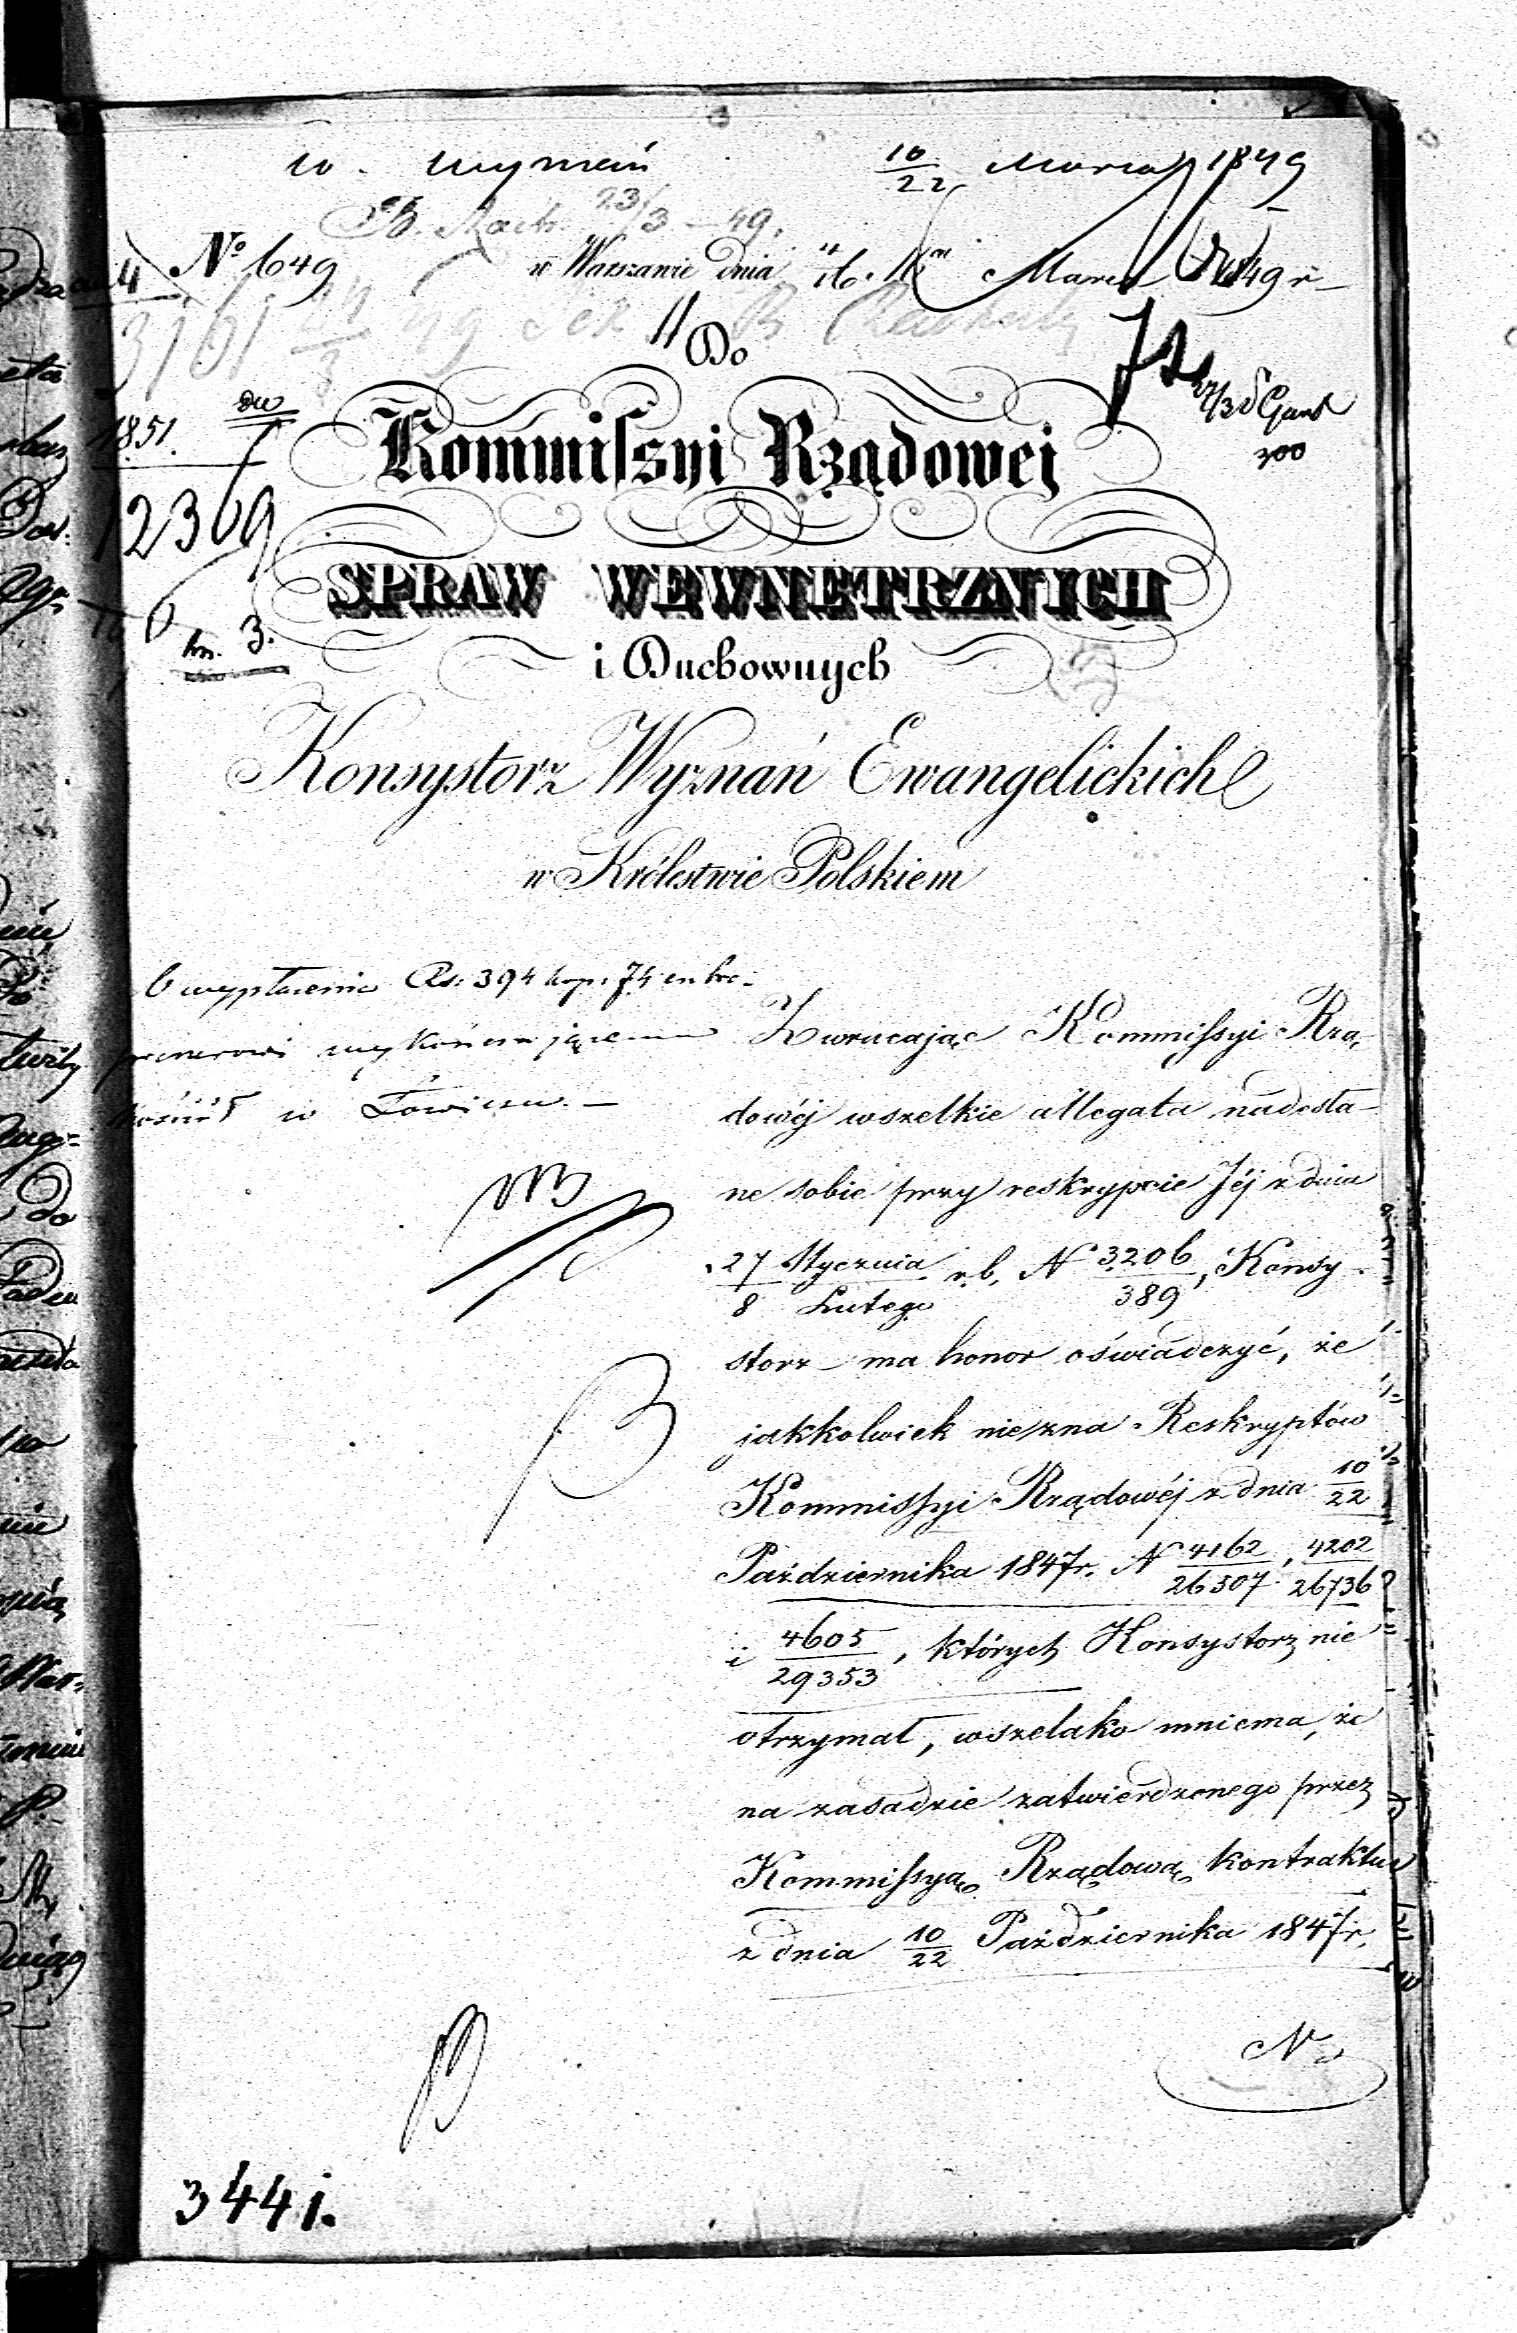 w. wyznań 10/22 Marca 1849
23/3 - 49.
No 649 w Warszawie dnia Marca 1849 r
Do
Kommissyi Rządowej
SPRAW WEWNETRZNYCH
i Duchownych
Konsystorz Wyznań Ewangelickich
w Królestwie Polskiem
1851.
12309
3.
300
O wypłacenie Rs: 394 kop: 74 entre-
prenerowi wykończającemu
kościół w Łowiczu. —
Zwracając Kommissyi Rzą-
dowéj wszelkie allegata nadesła-
ne sobie przy reskrypcie Jéj z dnia
27 Stycznia/8 Lutego r. b. N 3206/389, Konsy-
storz ma honor oświadczyć, że
jakkolwiek nie zna Reskryptów
Kommissyi Rządowéj z dnia 10/22
Października 1847 r. N 4162/26307, 4202/26736
i 4605/29353, których Konsystorz nie
otrzymał, wszelako mniema, że
na zasadzie zatwierdzonego przez
Kommissyą Rządową kontraktu
z dnia 10/22 Października 1847 r.
3441.